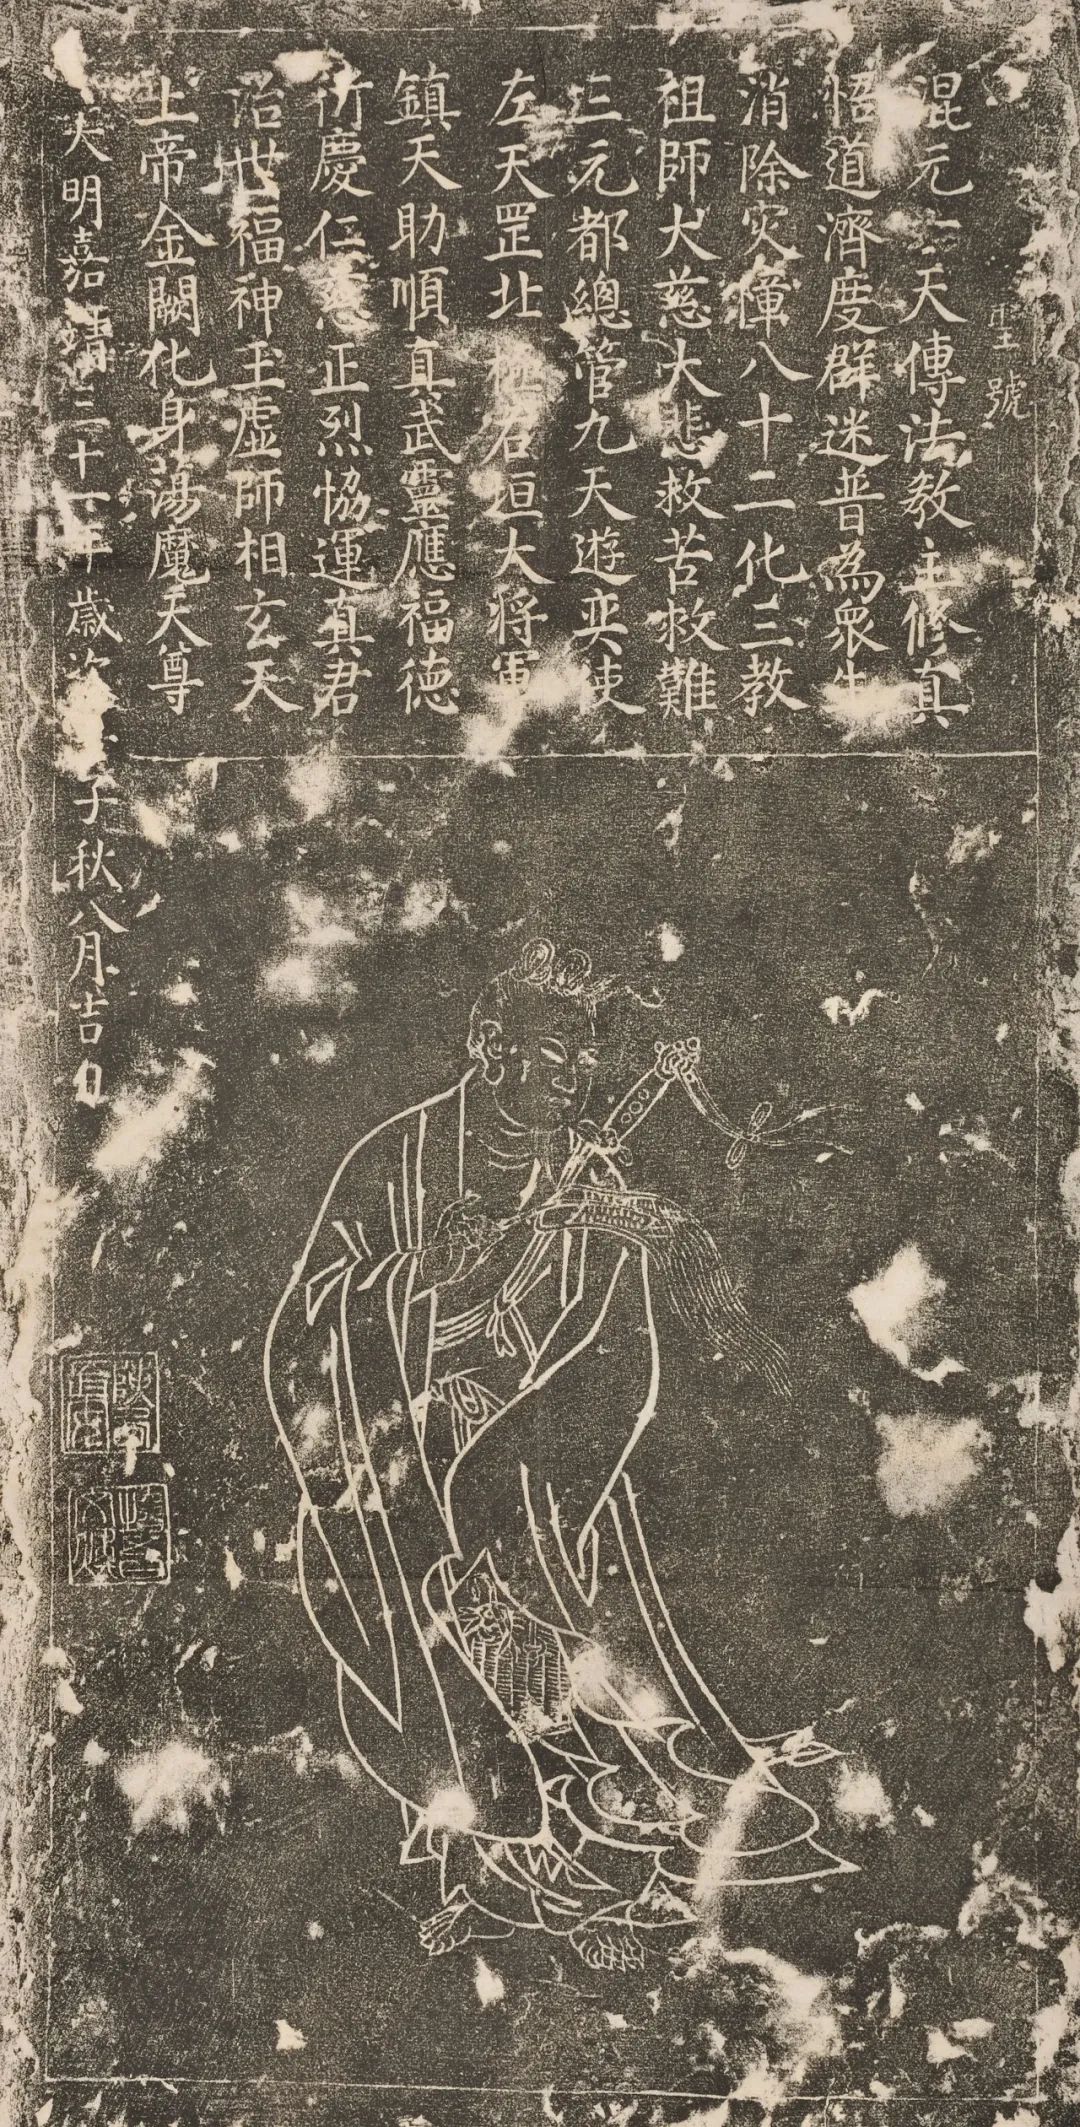 聖號
混元一天傳法教主修真
悟道濟度群迷普為衆生
消除灾障八十二化三教
祖師大慈大悲救苦救難
三元都總管九天遊奕使
左天罡北極右垣大將軍
鎮天助順真武靈應福德
衍慶仁慈正烈協運真君
治世福神玉虛師相玄天
上帝金闕化身蕩魔天尊
大明嘉靖三十一年歲次壬子秋八月吉日